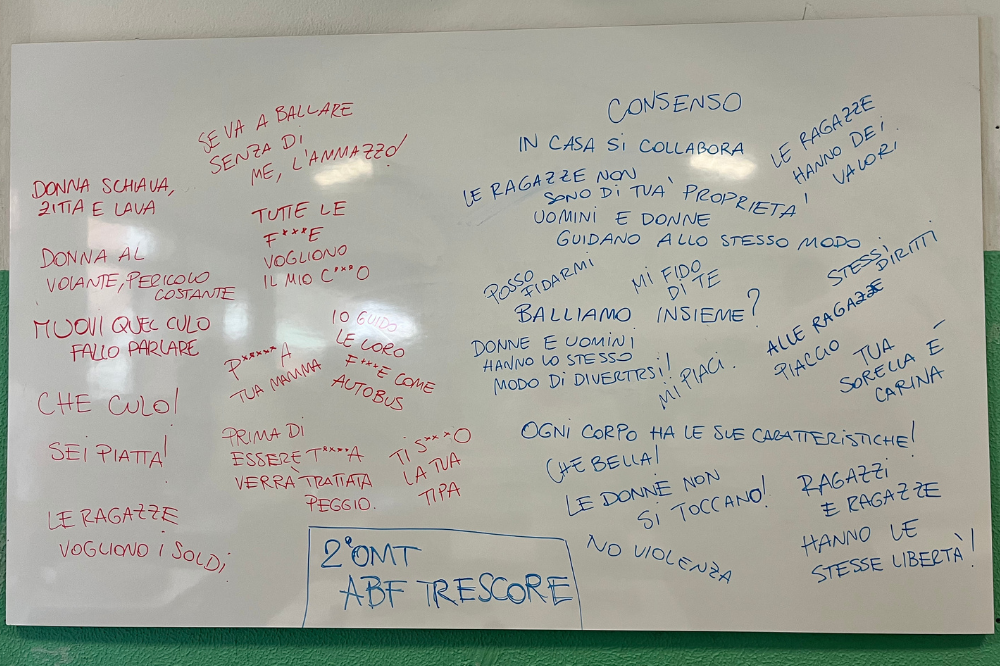 SE VA A BALLARE
SENZA DI
ME, L'AMMAZZO!
DONNA SCHIAVA,
ZITTA E LAVA
TUTTE LE
F***E
VOGLIONO
IL MIO C***O
DONNA AL
VOLANTE, PERICOLO
COSTANTE
MUOVI QUEL CULO
FALLO PARLARE
IO GUIDO
LE LORO
F***E COME
AUTOBUS
P*****A
TUA MAMMA
CHE CULO!
SEI PIATTA!
PRIMA DI
ESSERE T****A
VERRÀ TRATTATA
PEGGIO.
TI S***O
LA TUA
TIPA
LE RAGAZZE
VOGLIONO I SOLDI
CONSENSO
IN CASA SI COLLABORA
LE RAGAZZE
HANNO DEI
VALORI
LE RAGAZZE NON
SONO DI TUA' PROPRIETA'
UOMINI E DONNE
GUIDANO ALLO STESSO MODO
POSSO
FIDARMI
MI FIDO
DI TE
STESSI
DIRITTI
BALLIAMO INSIEME?
DONNE E UOMINI
HANNO LO STESSO
MODO DI DIVERTRSI!
MI PIACI.
ALLE RAGAZZE
PIACCIO
TUA
SORELLA È
CARINA
OGNI CORPO HA LE SUE CARATTERISTICHE!
CHE BELLA!
LE DONNE NON
SI TOCCANO!
RAGAZZI
E RAGAZZE
HANNO LE
STESSE LIBERTÀ!
NO VIOLENZA
2°OMT
ABF TRESCORE